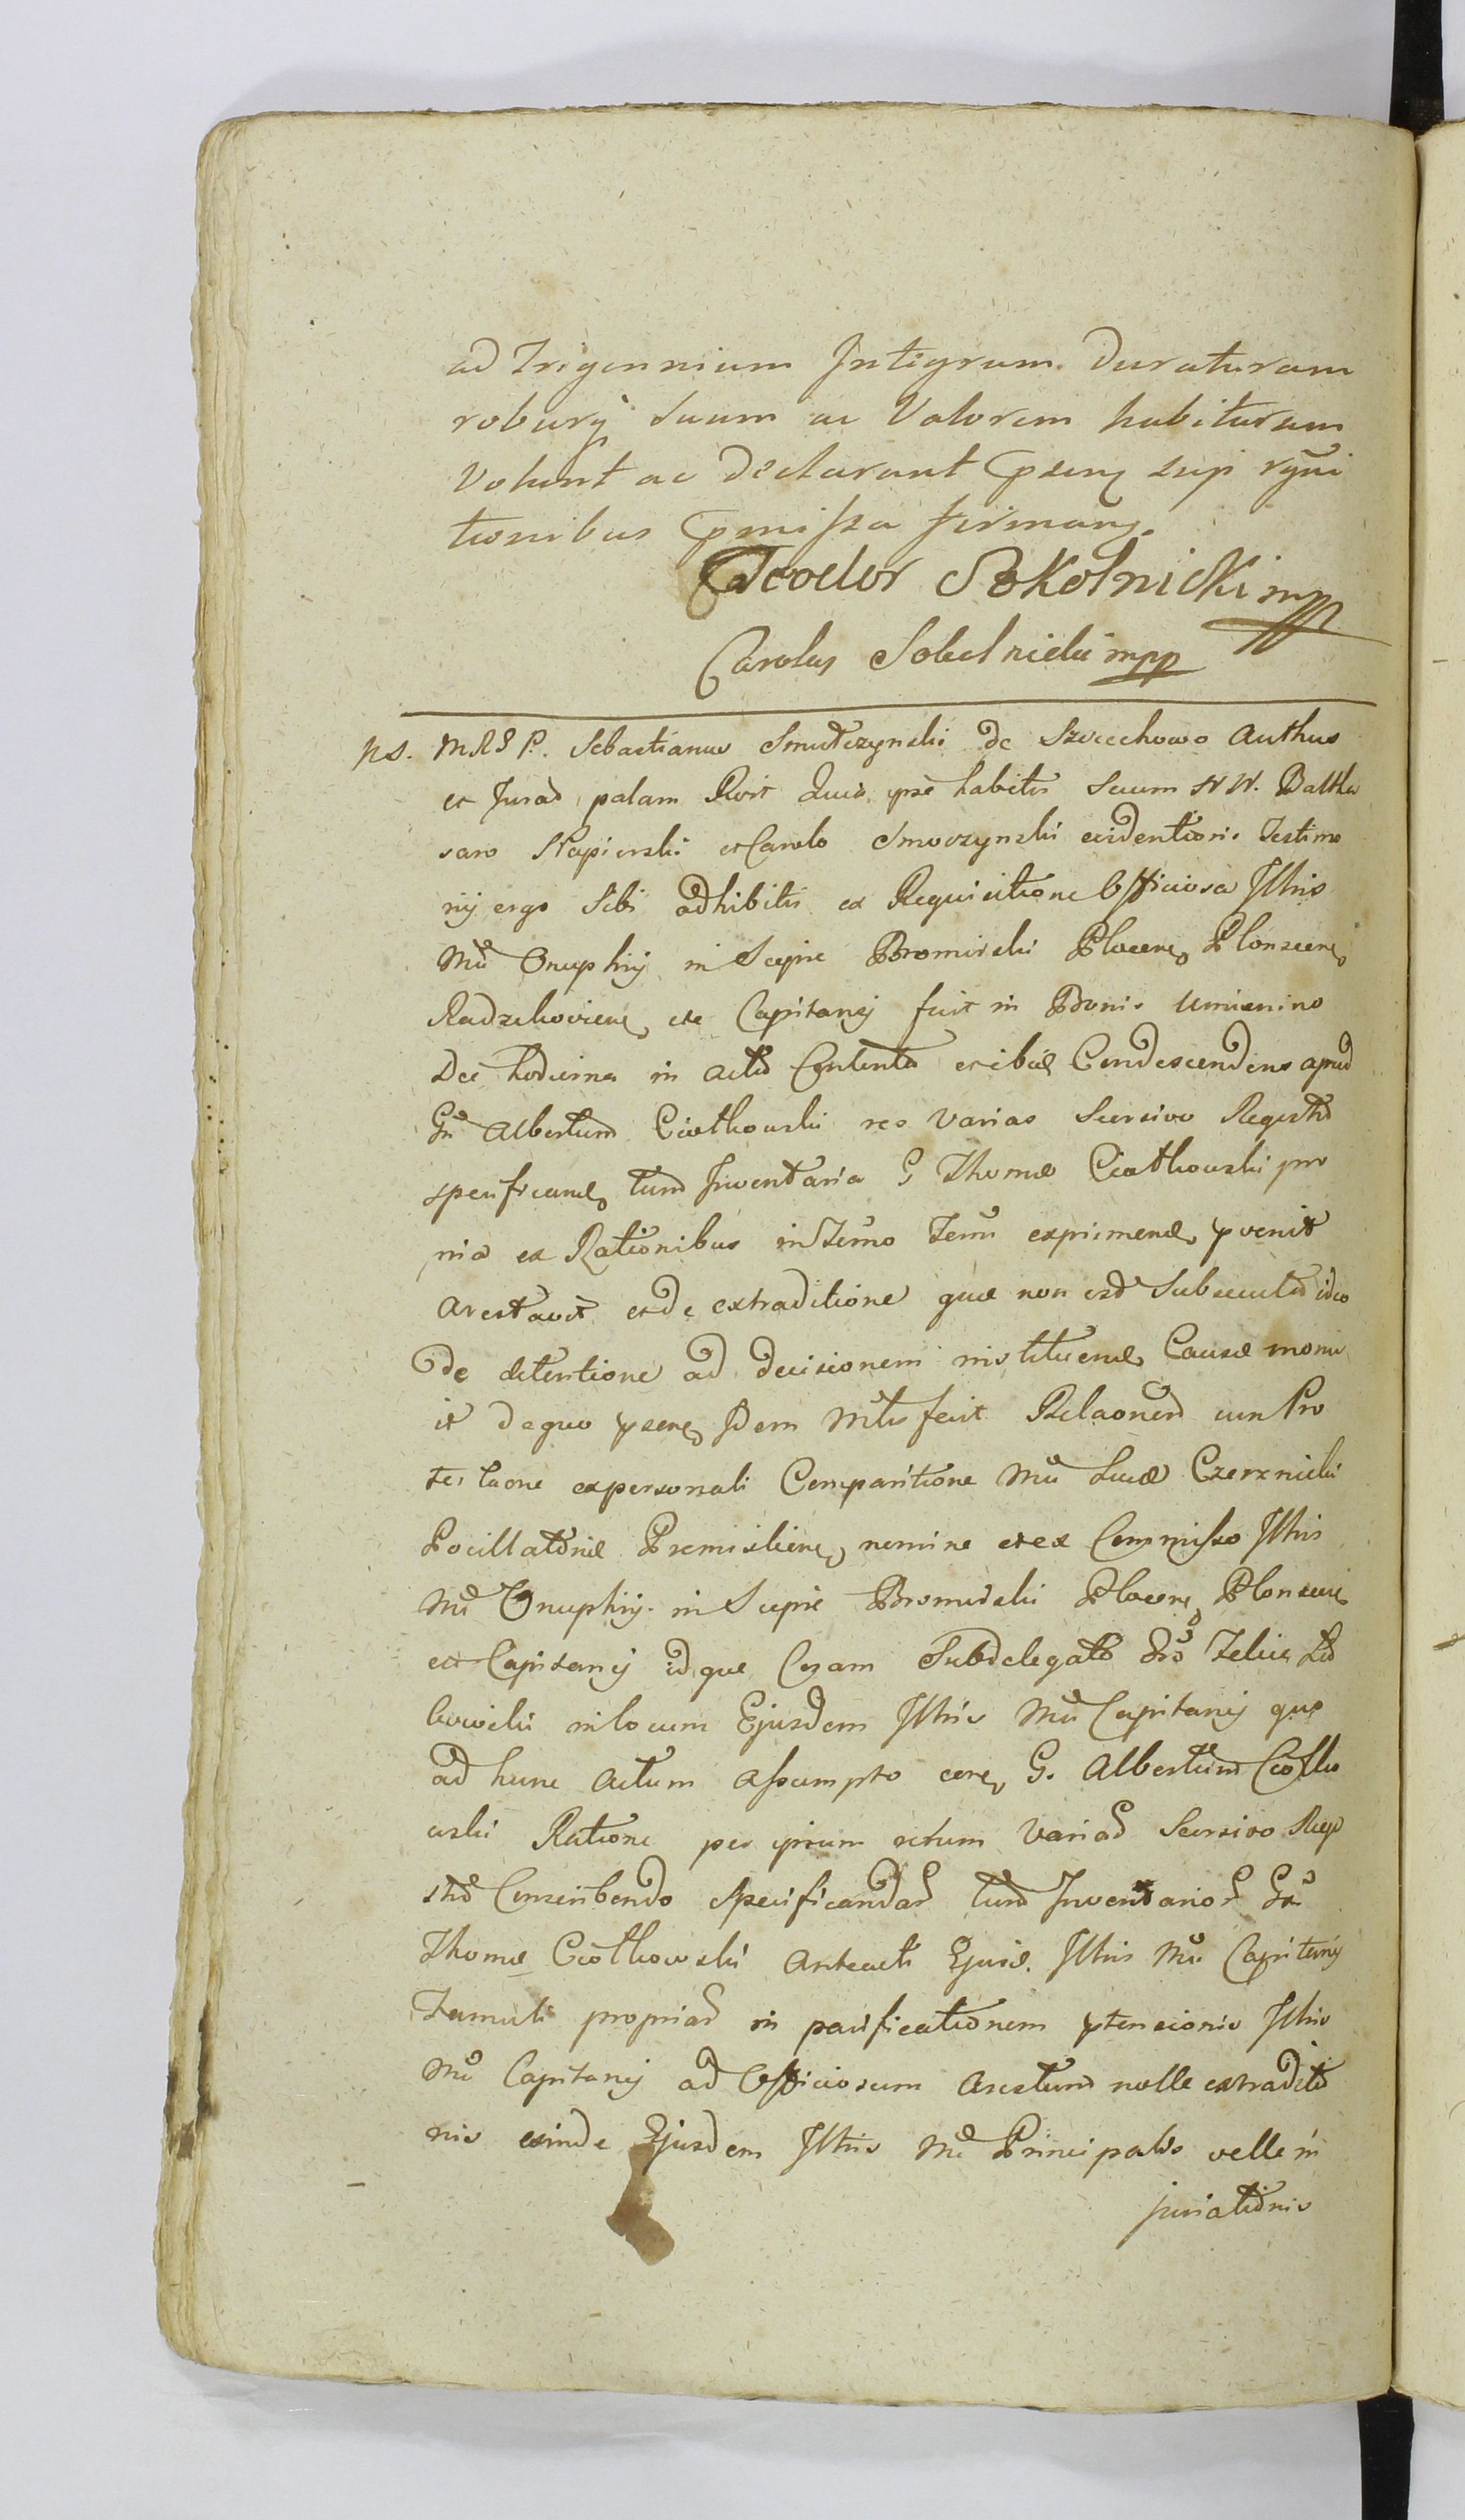 ad Trigennium Integrum duraturam
robury suum ac Valorem habituram
Volunt ac declarant sup
tionibus firman
Teodor Sokolnicki mpp
Carolus Sokolnicki mpp
ns. M R S P. Sebastianus Smutczynski de Szvechowo Authus
et Jurad palam Quia habitis Secum N N. Baltha
saro Napierski et Carolo Smoczynski evidentioris Testimo
nij ergo Sibi adhibitis ex Requisitione Officiosa Illris
Mci Onuphrij in Scepie Bromirski Plocen Plonscen
Radzikovien etc Capitanej fuit in Bonis Umienino
Die hodierna in actu Contenta et ibid Condescendens apud
Gn Albertum Ciotkowski res varias Seorsivo Regestro
specificand tum Inventaria G Thoma Ciotkowski pro
pria ex Rationibus in Termo Termi exprimend pvenit
arestavit et de extraditione quæ non est Subsecuta ideo
de detentione ad decisionem instituend Causæ monu
it de quo psens Idem Mtlis fecit Relaonem cum Pro
testaone ex personali Comparitione Mci Lucæ Czerznicki
Pocillatoris Premislien nomine et ex Commisso Illris
Mci Onuphrij in Scepie Bromirski Plocen Plonscen
etc Capitanej idque Coram Subdelegato
in locum Ejusdem Illris Mci Capitanej quo
ad hunc actum assumpto G. Albertum Ciotko
wski Ratione per ipsum rerum Variar Seorsivo Rege
stro Conscribendo Specificandar tum Inventarior Gsi
Thomæ Ciotkowski anteacti Ejusd. Illris Mci Capitanej
Famuli propriar in pacificationem ptensionis Illris
Mci Capitanej ad Officiosum Arestum nolle extraditio
nis exinde Ejusdem Illris Mci Principalis velle in
juriationis